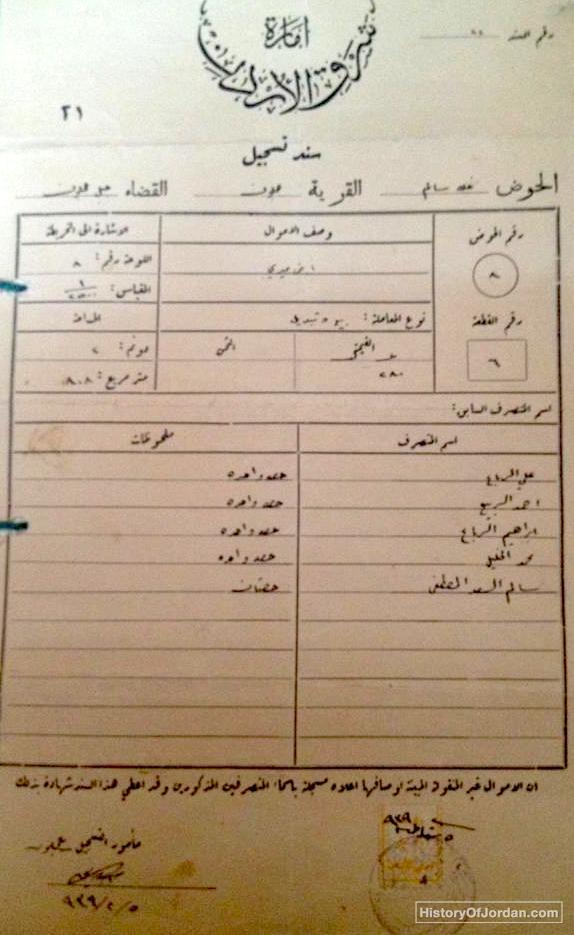 امارة
شرق الأردن
رقم السند
٢١
سند تسجيل
الحوض سالم القرية عجلون القضاء جبل عجلون
رقم الحوض
٨
رقم القطعة
٦
وصف الاموال
اميري
نوع المعاملة:
القيمة
٢٨٠
الثمن
الاشارة الى الخريطة
اللوحة رقم: ٨
القياس: ١/٢٥٠٠
المساحة
دونم: ٢
متر مربع: ٨٠٨
اسم المتصرف السابق:
اسم المتصرف ملحوظات
علي الرباع حصه واحده
احمد الربيع حصه واحده
ابراهيم الرباع حصه واحده
محمد الخليل حصه واحده
سالم السعد المصطفى حصتان
ان الاموال غير المنقولة المبينة اوصافها اعلاه مسجلة باسماء المتصرفين المذكورين وقد أعطي هذا السند شهادة بذلك
٥ شباط ٩٣٩
مأمور التسجيل عجلون
٩٣٩/٢/٥
HistoryOfJordan.com